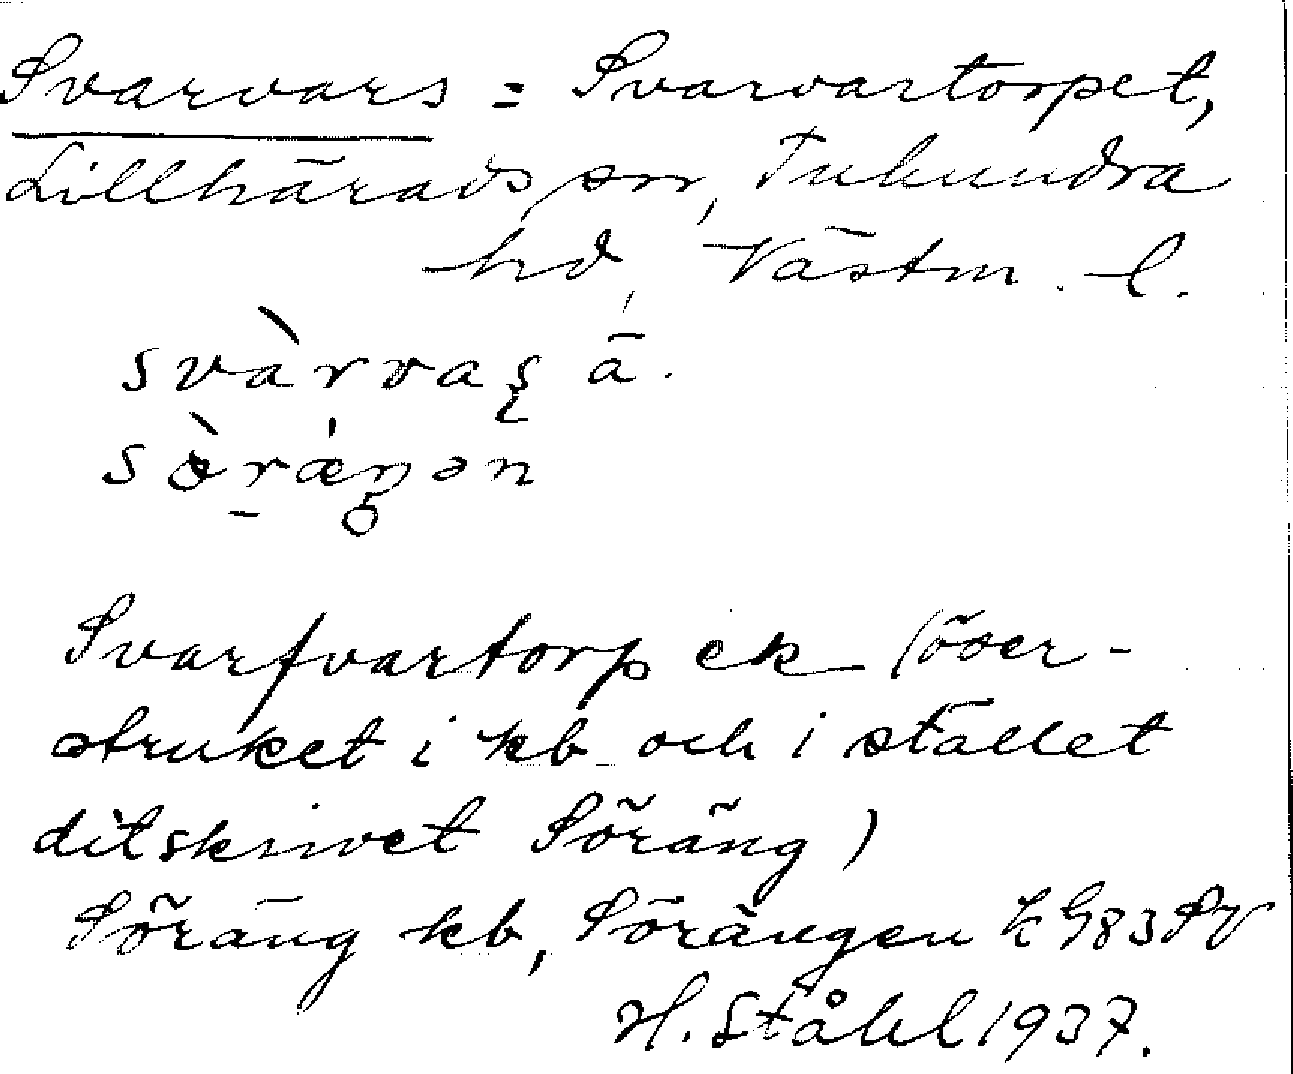 Svarvars = Svarvartorpet,
Lillhärads sn, Tuhundra
hd, Västm. l.
svàrvaș ä.
sè̠ræŋən
Svarfvartorp ek (över-
struket i kb och i stället
ditskrivet Söräng)
Söräng kb, Sörängen K G83 SV
H. Ståhl 1937.